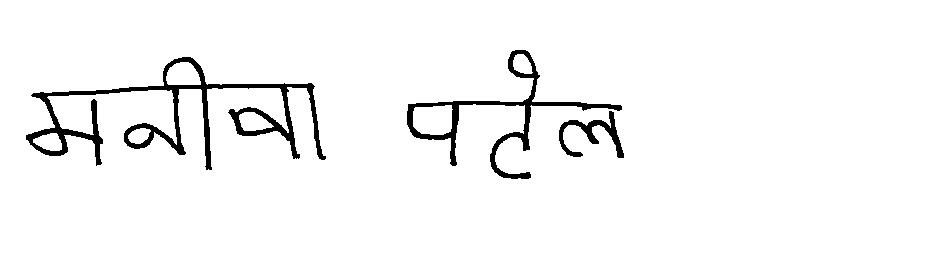 मनीवा पटेल